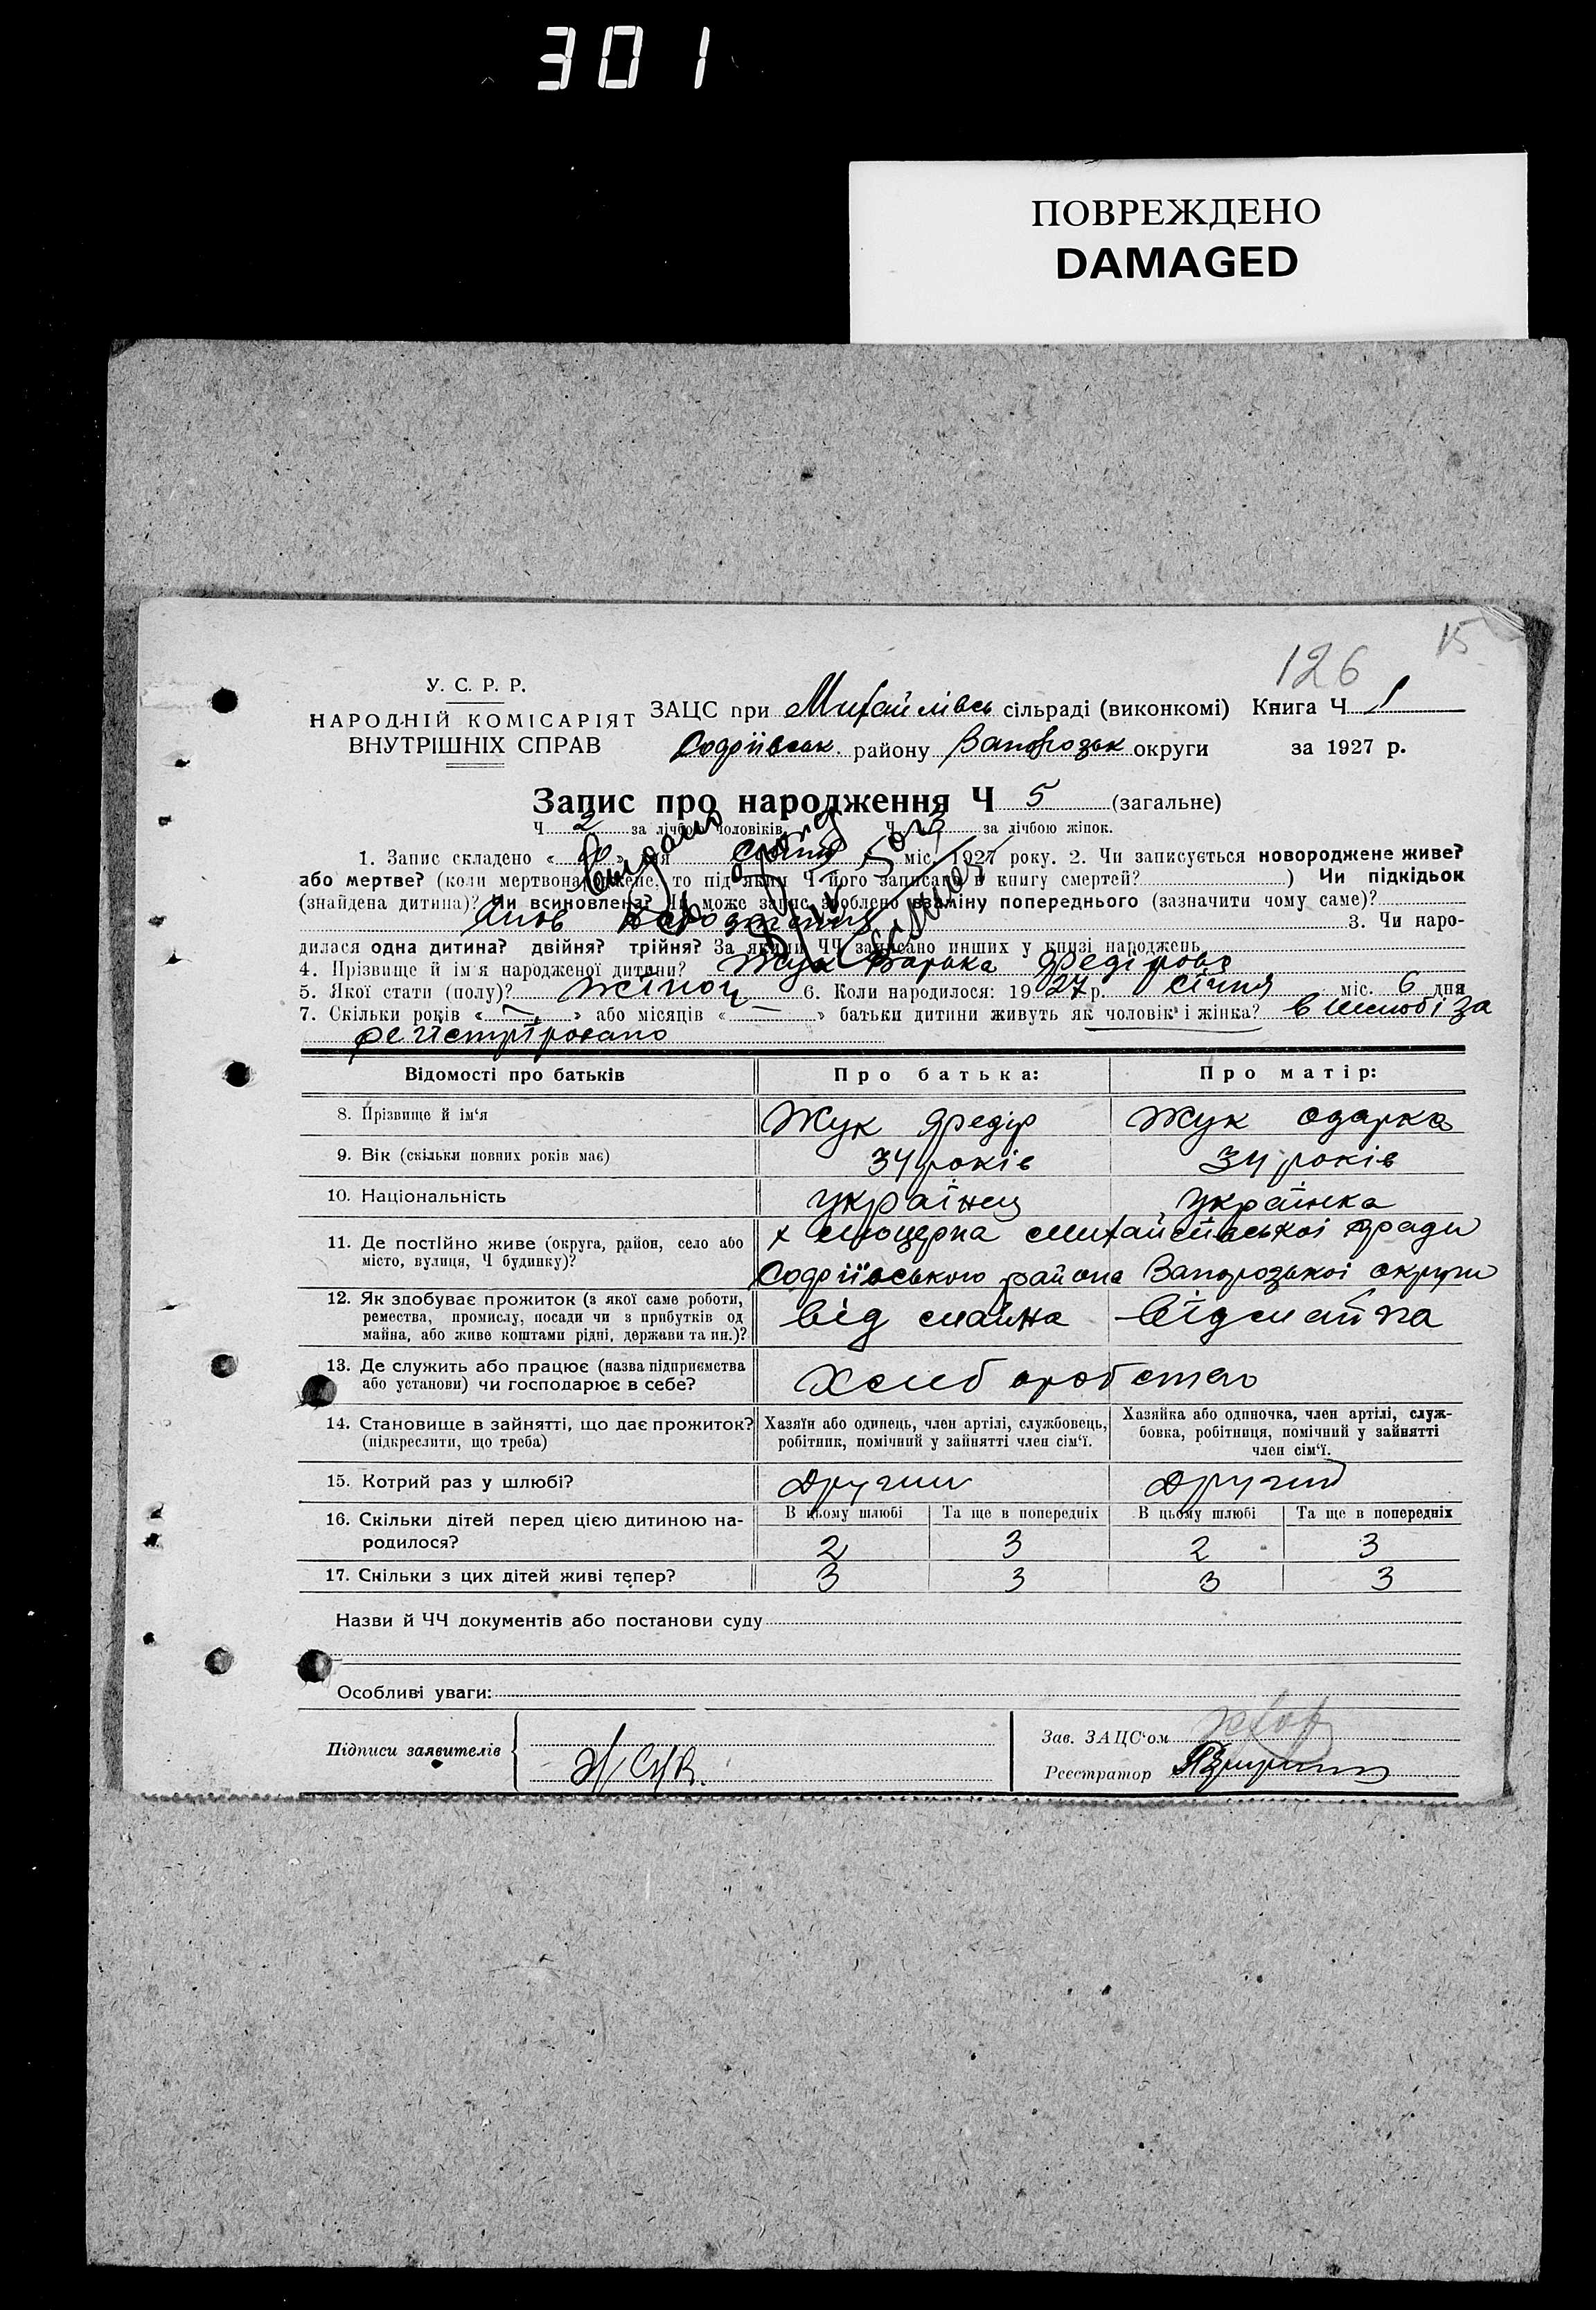 301
ПОВРЕЖДЕНО
DAMAGED
15
126
У. С. Р. Р.
НАРОДНІЙ КОМІСАРІЯТ
ВНУТРІШНІХ СПРАВ
ЗАЦС при Михайлівсь сільраді (виконкомі) Книга Ч 1
Софіївськ. району Запорозьк округи за 1927 р.
Запис про народження Ч 5 (загальне)
Ч 2 за лічбою чоловіків Ч 3 за лічбою жінок.
1. Запис складено « » дня січня міс. 1927 року. 2. Чи записується новороджене живе?
або мертве? (коли мертвонароджене, то під яким Ч його записано в книгу смертей? ) Чи підкідьок
(знайдена дитина)? Чи всиновлена? Чи може запис зроблено взаміну попереднього (зазначити чому саме)?
3. Чи наро-
дилася одна дитина? двійня? трійня? За якими ЧЧ записано инших у книзі народжень
4. Прізвище й ім'я народженої дитини? Жук Варька Федірова
5. Якої стати (полу)? жіноч 6. Коли народилося: 1927 р. січня міс. 6 дня
7. Скільки років « — » або місяців « — » батьки дитини живуть як чоловік і жінка? в шлюбі за
регістріровано
Відомості про батьків Про батька: Про матір:
8. Прізвище й ім'я Жук Федір Жук Одарка
9. Вік (скільки повних років має) 34 років 34 років
10. Національність українец українка
11. Де постійно живе (округа, район, село або
місто, вулиця, Ч будинку)?
х Люцерна Михайлівської сради
Софіївського района Запорозької округи
12. Як здобуває прожиток (з якої саме роботи,
ремества, промислу, посади чи з прибутків од
майна, або живе коштами рідні, держави та ин.)?
від майна від майна
13. Де служить або працює (назва підприємства
або установи) чи господарює в себе?
Хлиборобство
14. Становище в зайнятті, що дає прожиток?
(підкреслити, що треба)
Хазяїн або одинець, член артілі, службовець,
робітник, помічний у зайнятті член сім'ї.
Хазяйка або одиночка, член артілі, служ-
бовка, робітниця, помічний у зайнятті
член сім'ї.
15. Котрий раз у шлюбі? Другий Другий
16. Скільки дітей перед цією дитиною на-
родилося?
В цьому шлюбі Та ще в попередніх В цьому шлюбі Та ще в попередніх
2 3 2 3
17. Скільки з цих дітей живі тепер? 3 3 3 3
Назви й ЧЧ документів або постанови суду
Особливі уваги:
Підписи заявителів
Зав. ЗАЦС'ом
Реєстратор